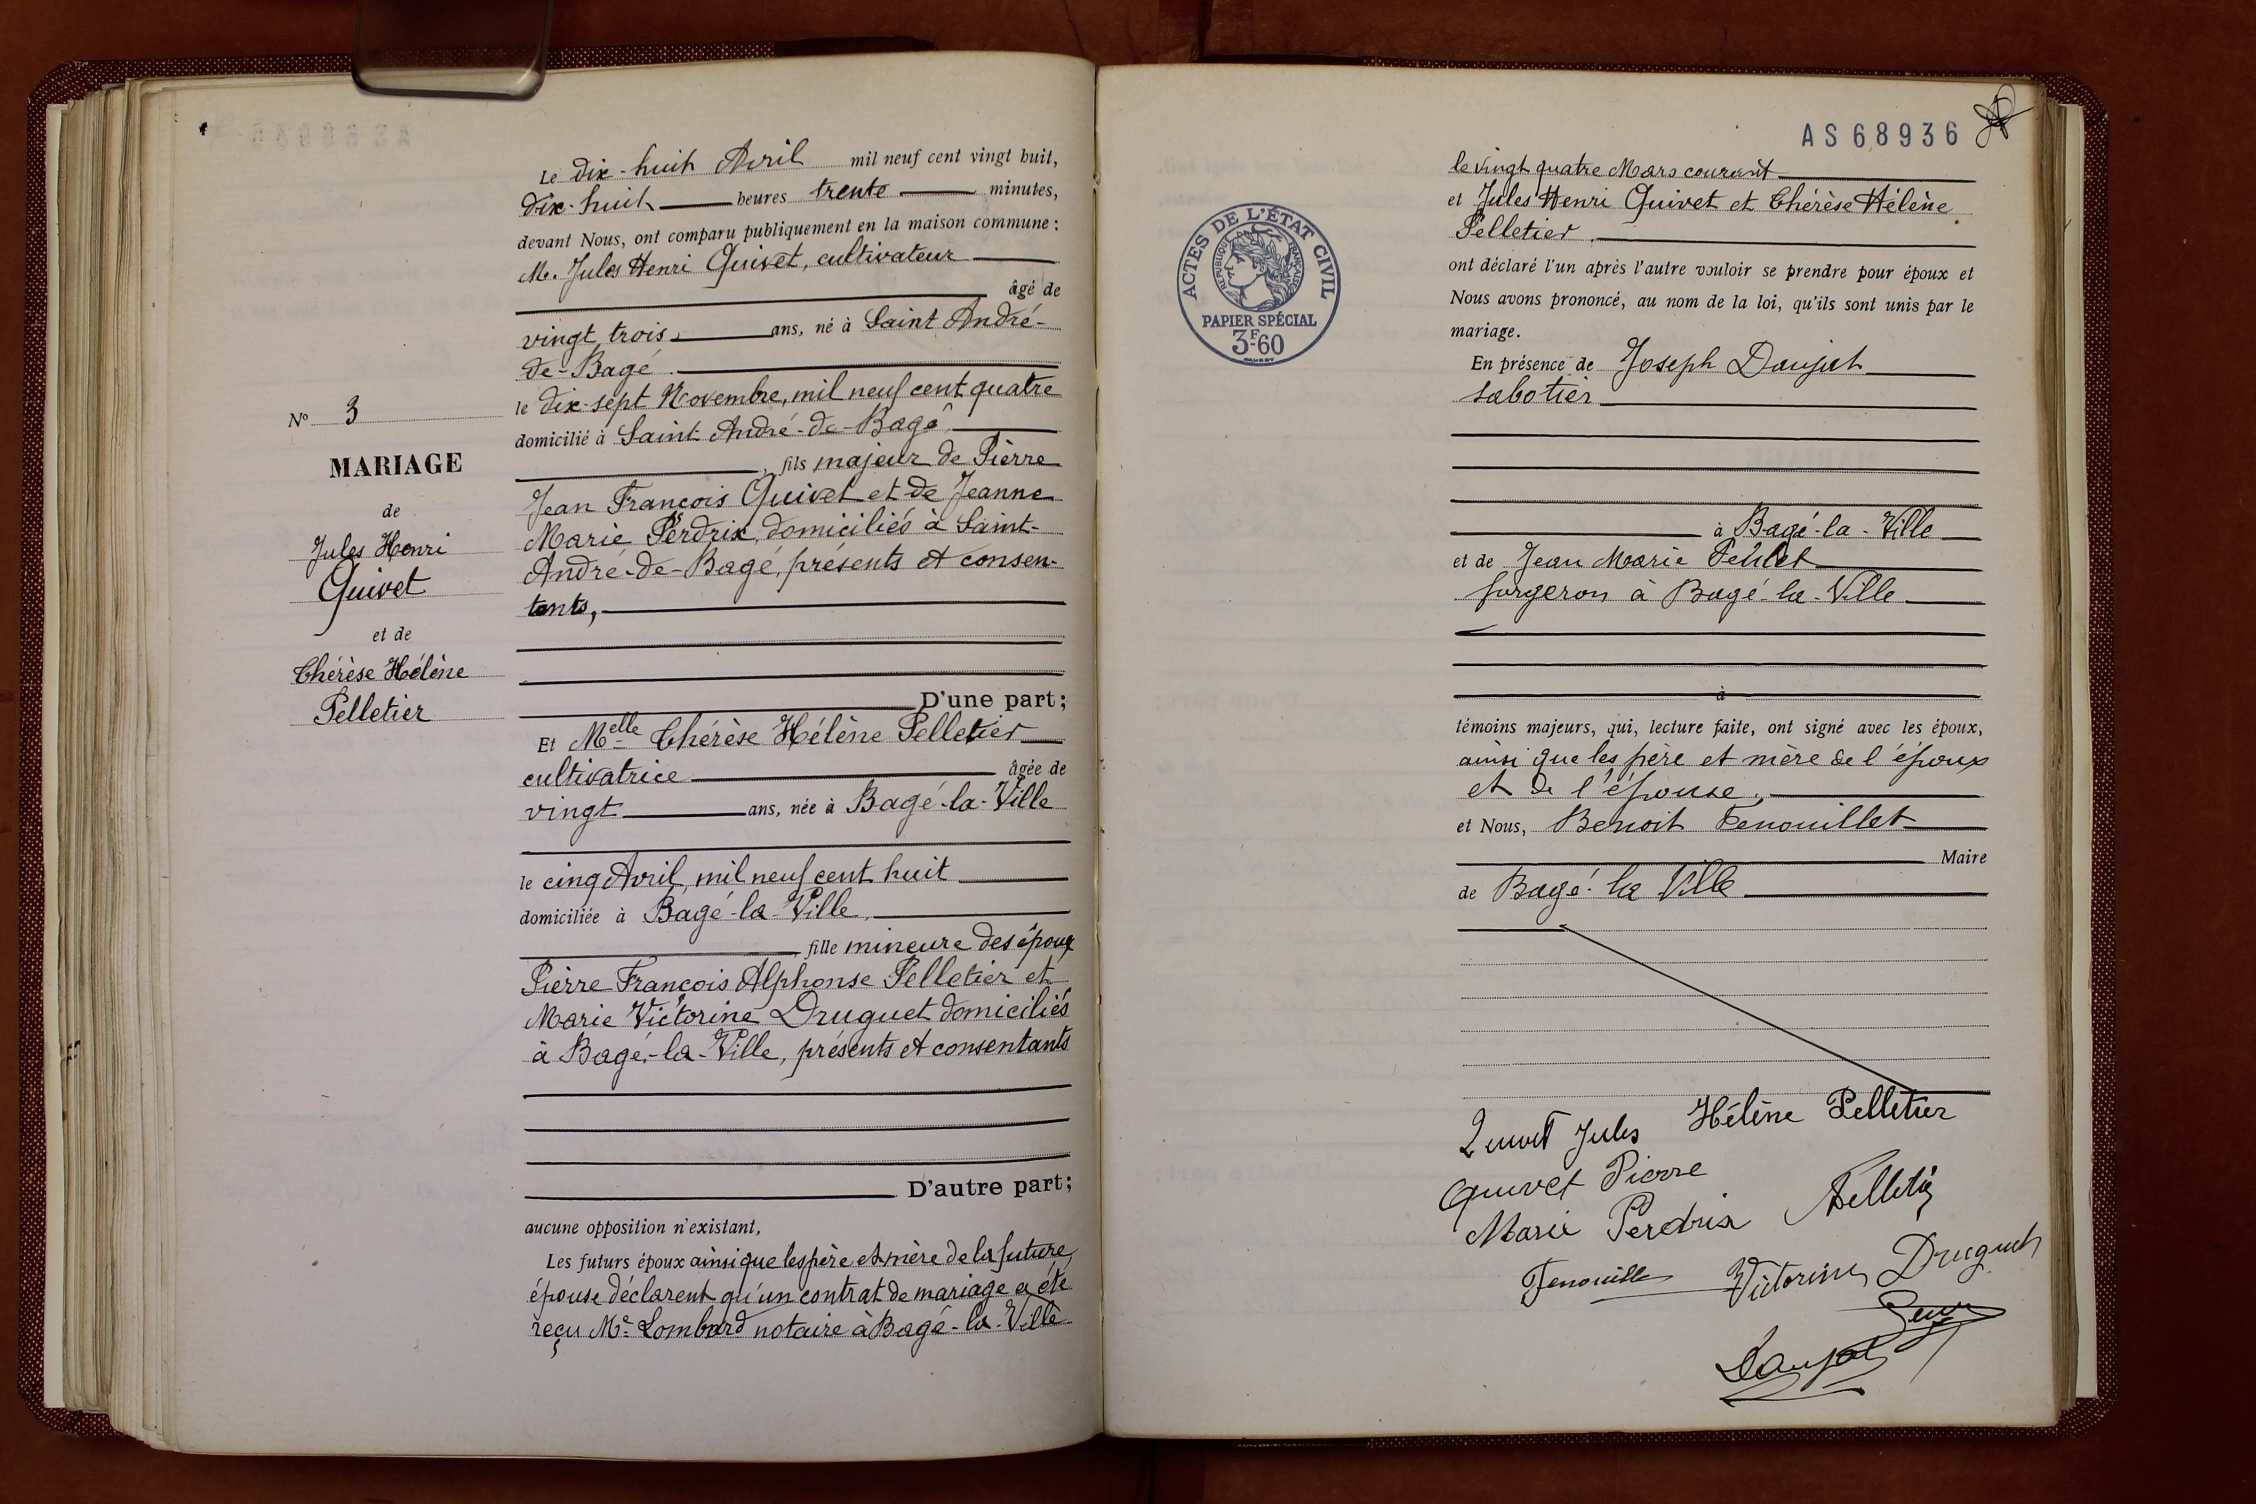 N° 3
MARIAGE
de
Jules Henri
Quivet
et de
Thérèse Hélène
Pelletier
Le dix-huit Avril mil neuf cent vingt huit,
dix-huit heures trente minutes,
devant Nous, ont comparu publiquement en la maison commune :
M. Jules Henri Quivet, cultivateur
âgé de
vingt trois ans, né à Saint André-
de-Bagé
le dix-sept Novembre, mil neuf cent quatre
domicilié à Saint-André-de-Bagé
, fils majeur de Pierre
Jean François Quivet et de Jeanne
Marie Perdrix, domiciliés à Saint-
André-de-Bagé, présents et consen-
tants,
D'une part;
Et Melle Thérèse Hélène Pelletier
cultivatrice âgée de
vingt ans, née à Bagé-la-Ville
le cinq Avril, mil neuf cent huit
domiciliée à Bagé-la-Ville,
, fille mineure des époux
Pierre François Alphonse Pelletier et
Marie Victorine Druguet domiciliés
à Bagé-la-Ville, présents et consentants
D'autre part;
aucune opposition n'existant,
Les futurs époux ainsi que les père et mère de la future
épouse déclarent qu'un contrat de mariage a été
reçu Me Lombard notaire à Bagé-la-Ville
AS 68936
le vingt quatre Mars courant
et Jules Henri Quivet et Thérèse Hélène
Pelletier
ont déclaré l'un après l'autre vouloir se prendre pour époux et
Nous avons prononcé, au nom de la loi, qu'ils sont unis par le
mariage.
ACTES DE L'ÉTAT CIVIL
RÉPUBLIQUE FRANÇAISE
PAPIER SPÉCIAL
3F-60
En présence de Joseph Daujat
sabotier
à Bagé-la-Ville
et de Jean Marie
forgeron à Bagé-la-Ville
à
témoins majeurs, qui, lecture faite, ont signé avec les époux,
ainsi que les père et mère de l'époux
et de l'épouse,
et Nous, Benoit Fenouillet
Maire
de Bagé-la Ville
Quivet Jules Hélène Pelletier
Quivet Pierre
Marie Perdrix Pelletier
Fenouillet Victorine Druguet
Daujat